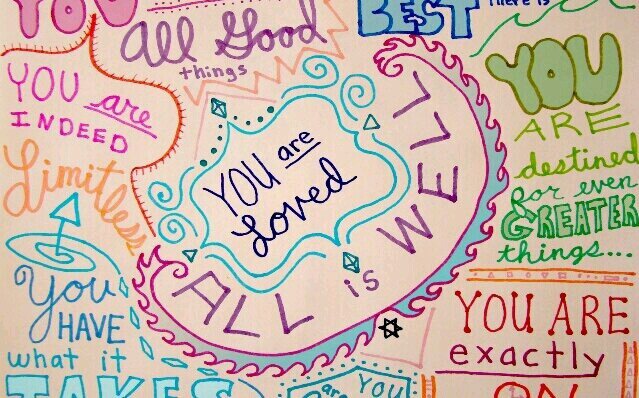 YOU
All Good
things
BEST
There is
YOU are
INDEED
Limitless
YOU are
Loved
ALL is WELL
YOU
ARE
destined
for even
GREATER
things...
You
HAVE
what it
TAKES
are YOU
YOU ARE
exactly
ON